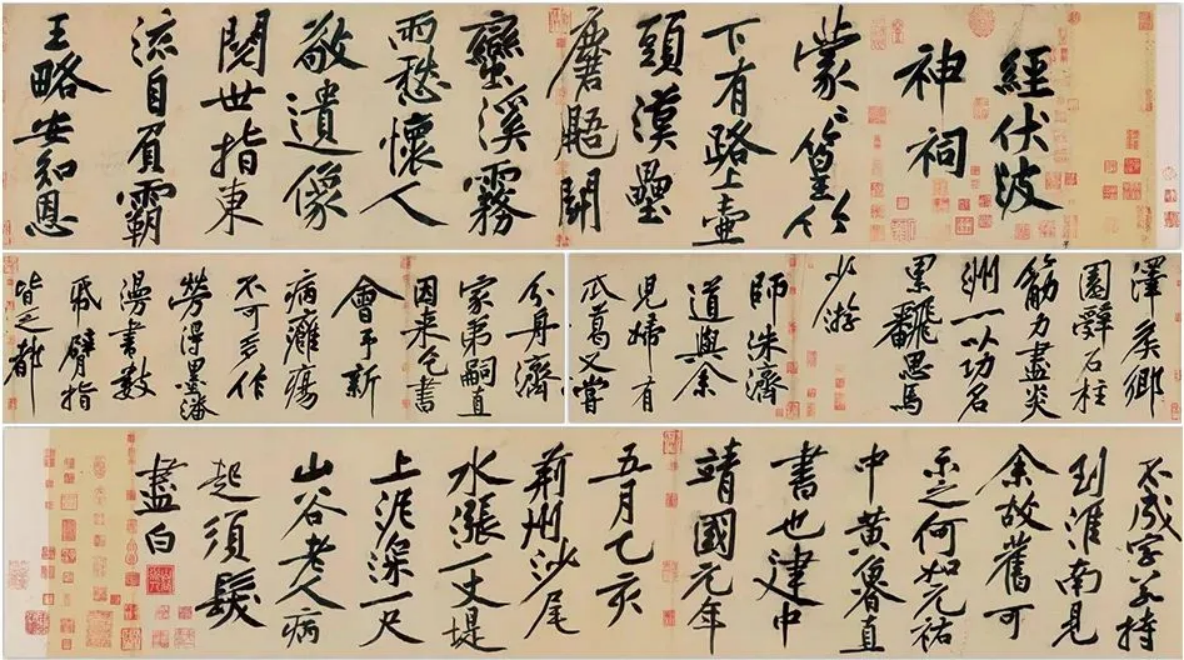 經伏波
神祠
蒙〻篁竹
下有路上壺
頭漢壘
麕鼯鬭
蠻溪霧
雨愁懷人
敬遺像
閱世指東
流自負霸
王略安知恩
澤侯鄉
園辭石柱
筋力盡炎
洲一以功名
累飜思馬
少游
師洙濟
道與余
兒婦有
瓜葛又嘗
分舟濟
家弟嗣直
因來乞書
會予新
病癰瘍
不可多作
勞得墨瀋
漫書數
紙臂指
皆乏都
不成字若持
到淮南見
余故舊可
示之何如元祐
中黃魯直
書也建中
靖國元年
五月乙亥
荊州沙尾
水漲一丈堤
上泥深一尺
山谷老人病
起須髮
盡白